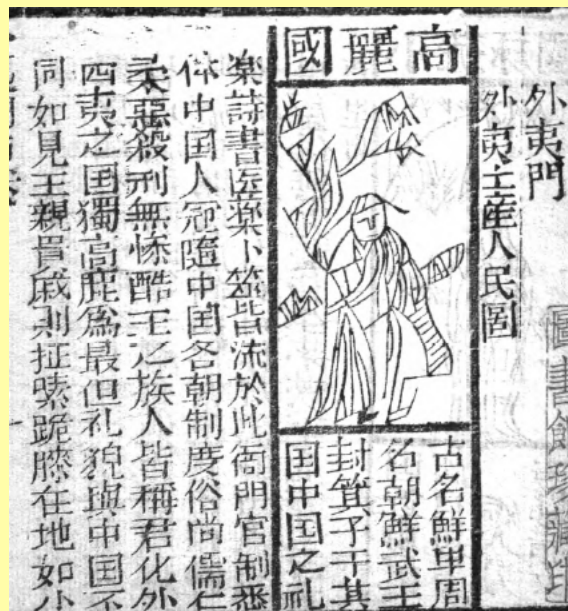 外夷門
外夷土産人民圖
高麗國
古名鮮卑周
名朝鮮武王
封箕子于其
国中国之礼
楽詩書医薬卜筮皆流於此衙門官制悉
体中国人冠隨中国各朝制度俗尚儒仁
柔惡殺刑無慘酷王之族人皆稱君化外
四夷之国獨高麗為最但礼貌與中国不
同如見王親貴戚則扯嗉跪膝在地如小
圖書館珍藏印